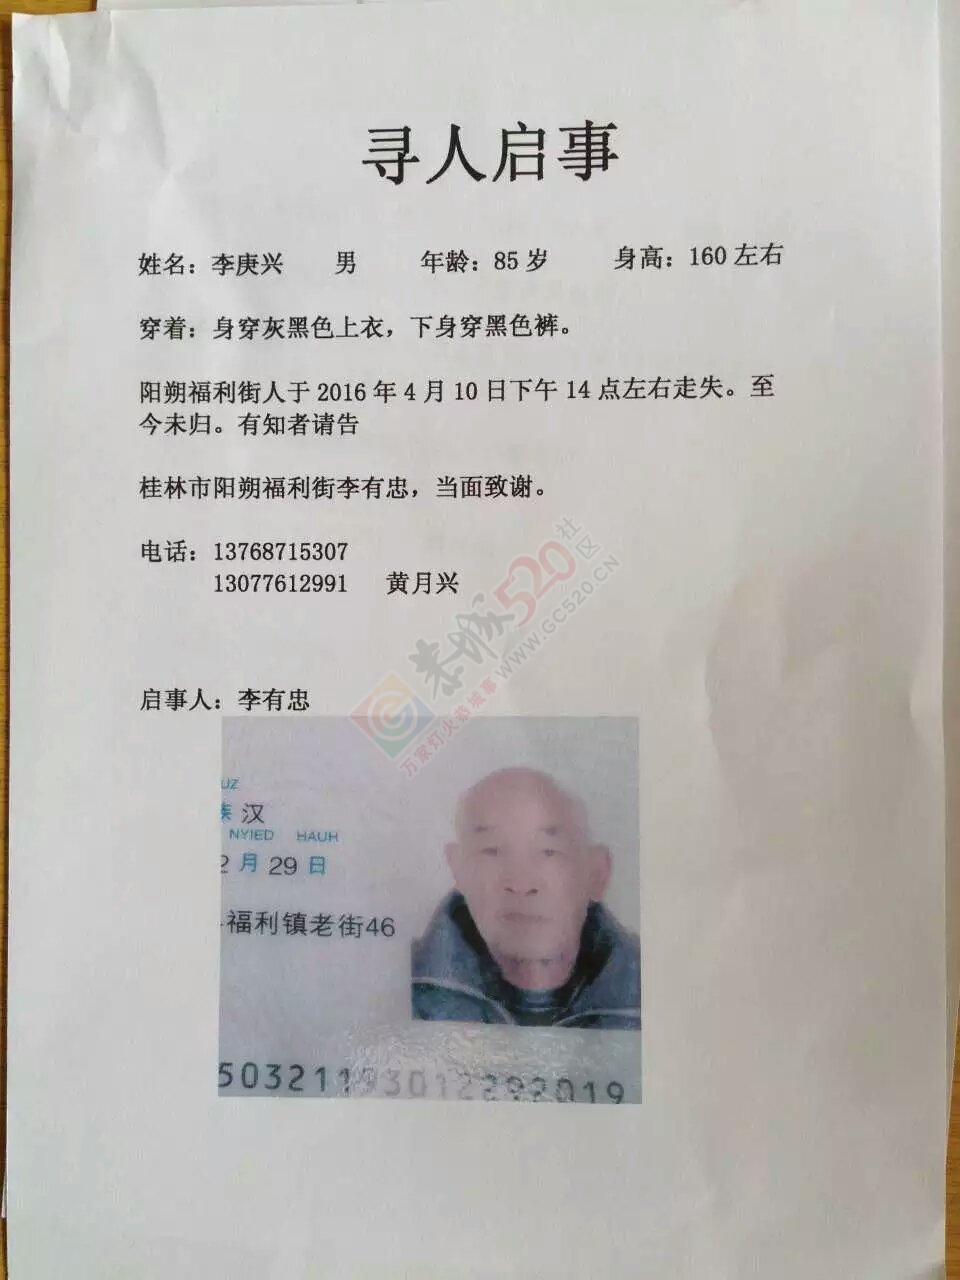 寻人启事
姓名：李庚兴 男 年龄：85岁 身高：160左右
穿着：身穿灰黑色上衣，下身穿黑色裤。
阳朔福利街人于2016年4月10日下午14点左右走失。至
今未归。有知者请告
桂林市阳朔福利街李有忠，当面致谢。
电话：13768715307
13077612991 黄月兴
恭城520社区
WWW.GC520.CN
万家灯火恭城事
启事人：李有忠
UZ
族 汉
NYIED HAUH
2月29日
福利镇老街46
503211193012292019